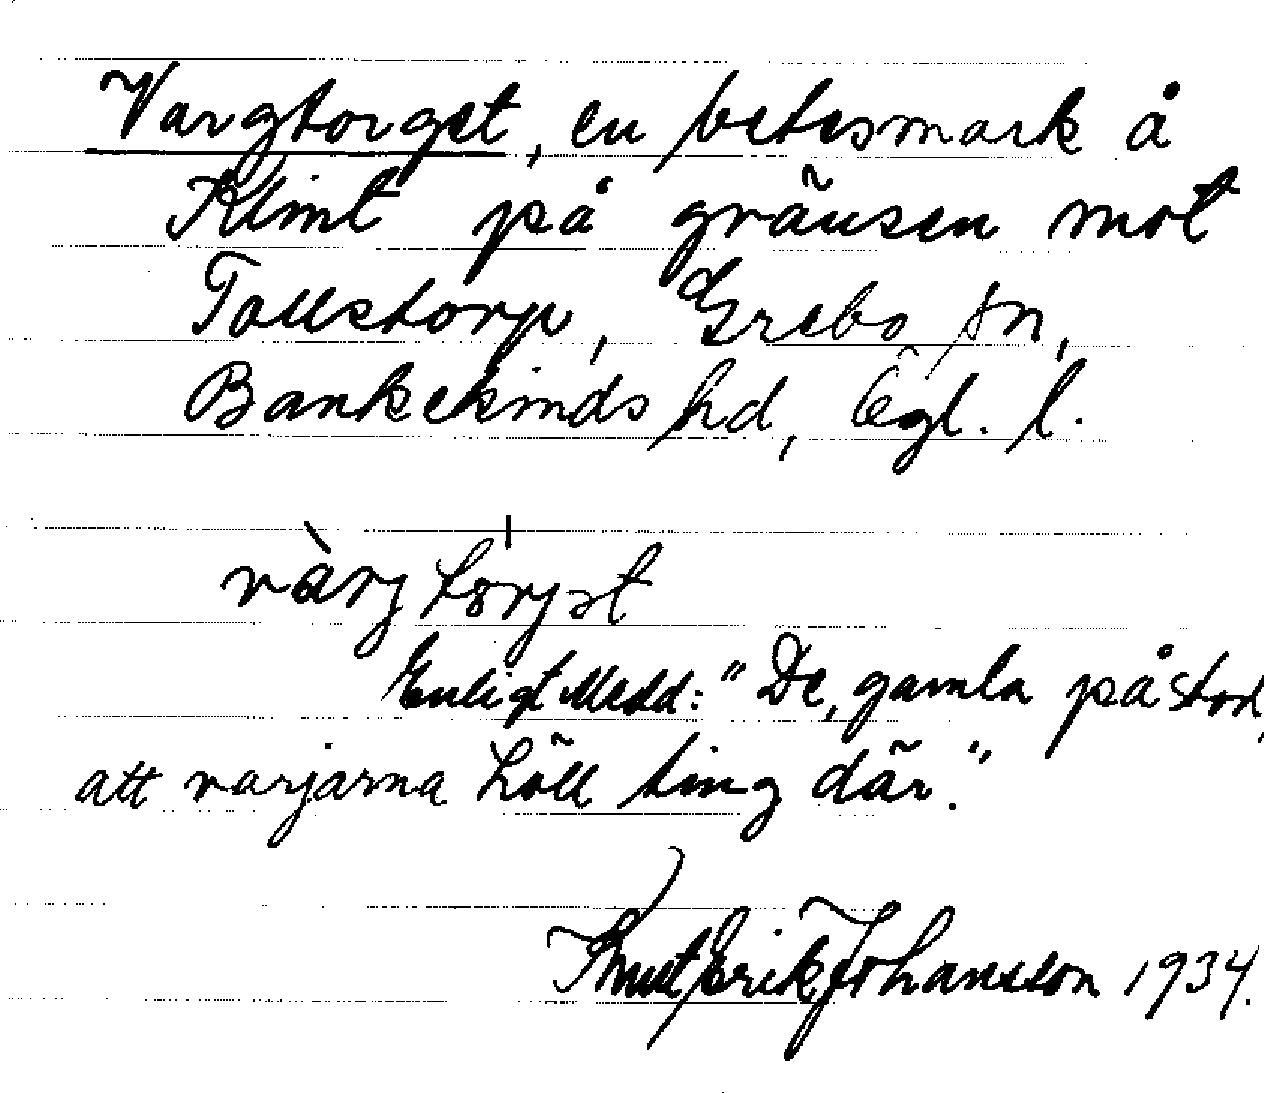 Vargtorget, en betesmark å
Klint på gränsen mot
Tollstorp, Grebo sn,
Bankekinds hd, Ögl. l.
vàrj tòrjət
Enligt Medd: "De gamla påstod,
att varjarna höll ting där."
Knut Erik Johansson 1934.